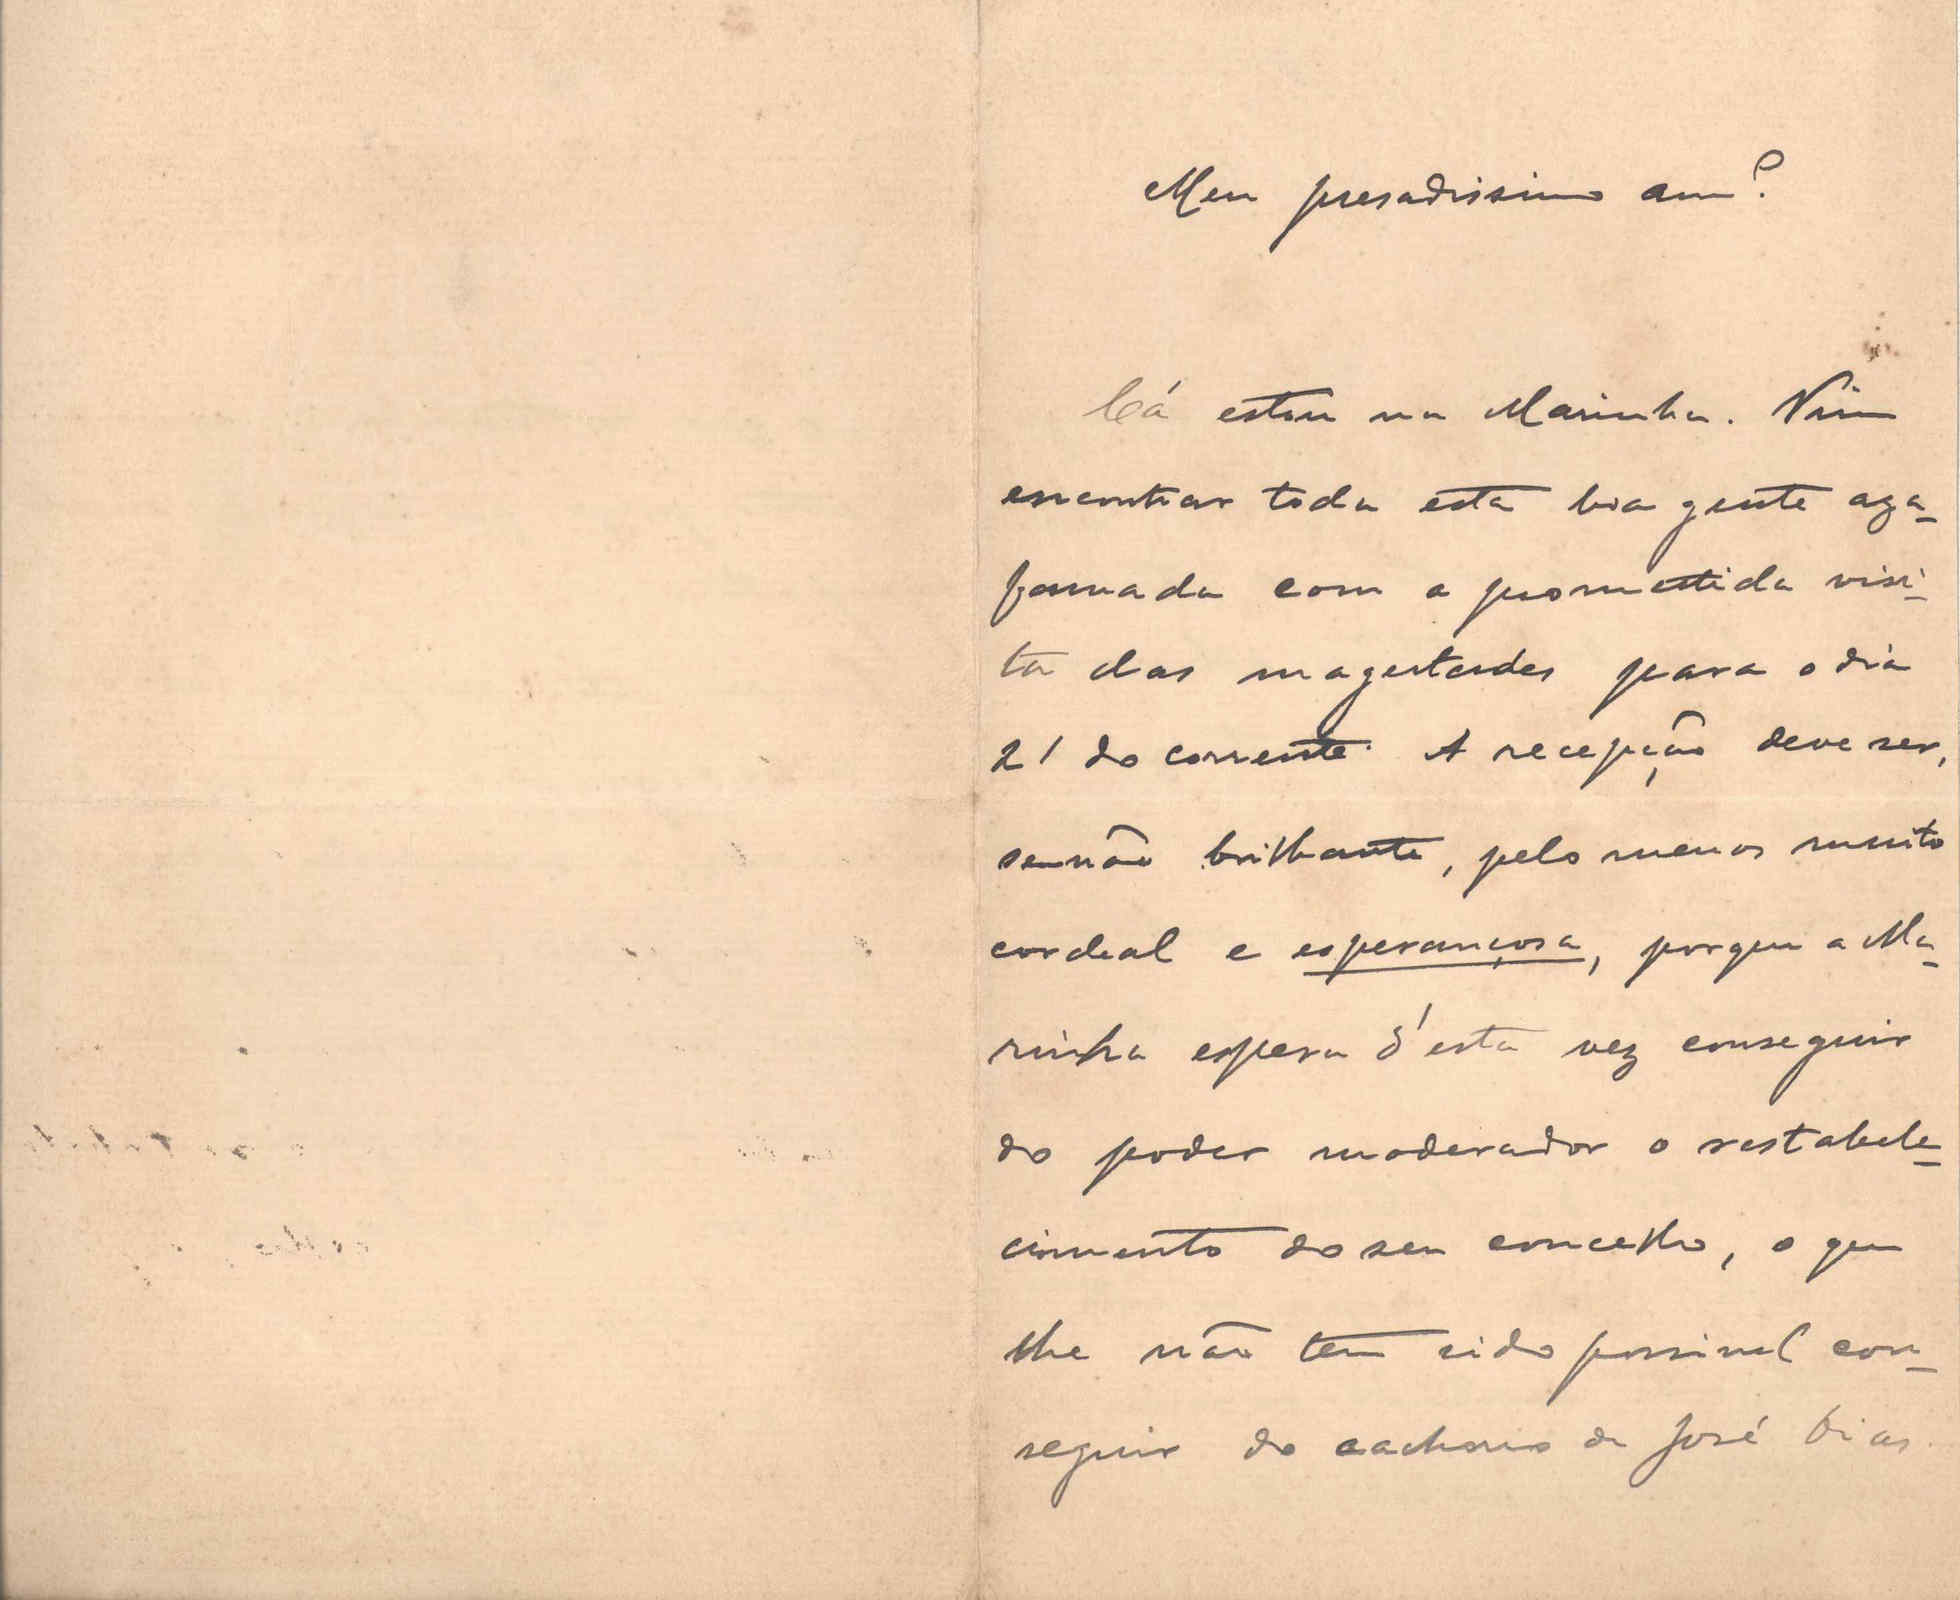 Meu presadissimo amº.
Cá estou na Marinha. Vim
encontrar toda esta boa gente aza-
famada com a promettida visi-
ta das magestades para o dia
21 do corrente. A recepção deve ser,
senão brilhante, pelo menos muito
cordeal e esperançosa, porque a Ma-
rinha espera d'esta vez conseguir
do poder moderador o restabele-
cimento do seu concelho, o que
lhe não tem sido possivel con-
seguir do cachorro de José Dias.